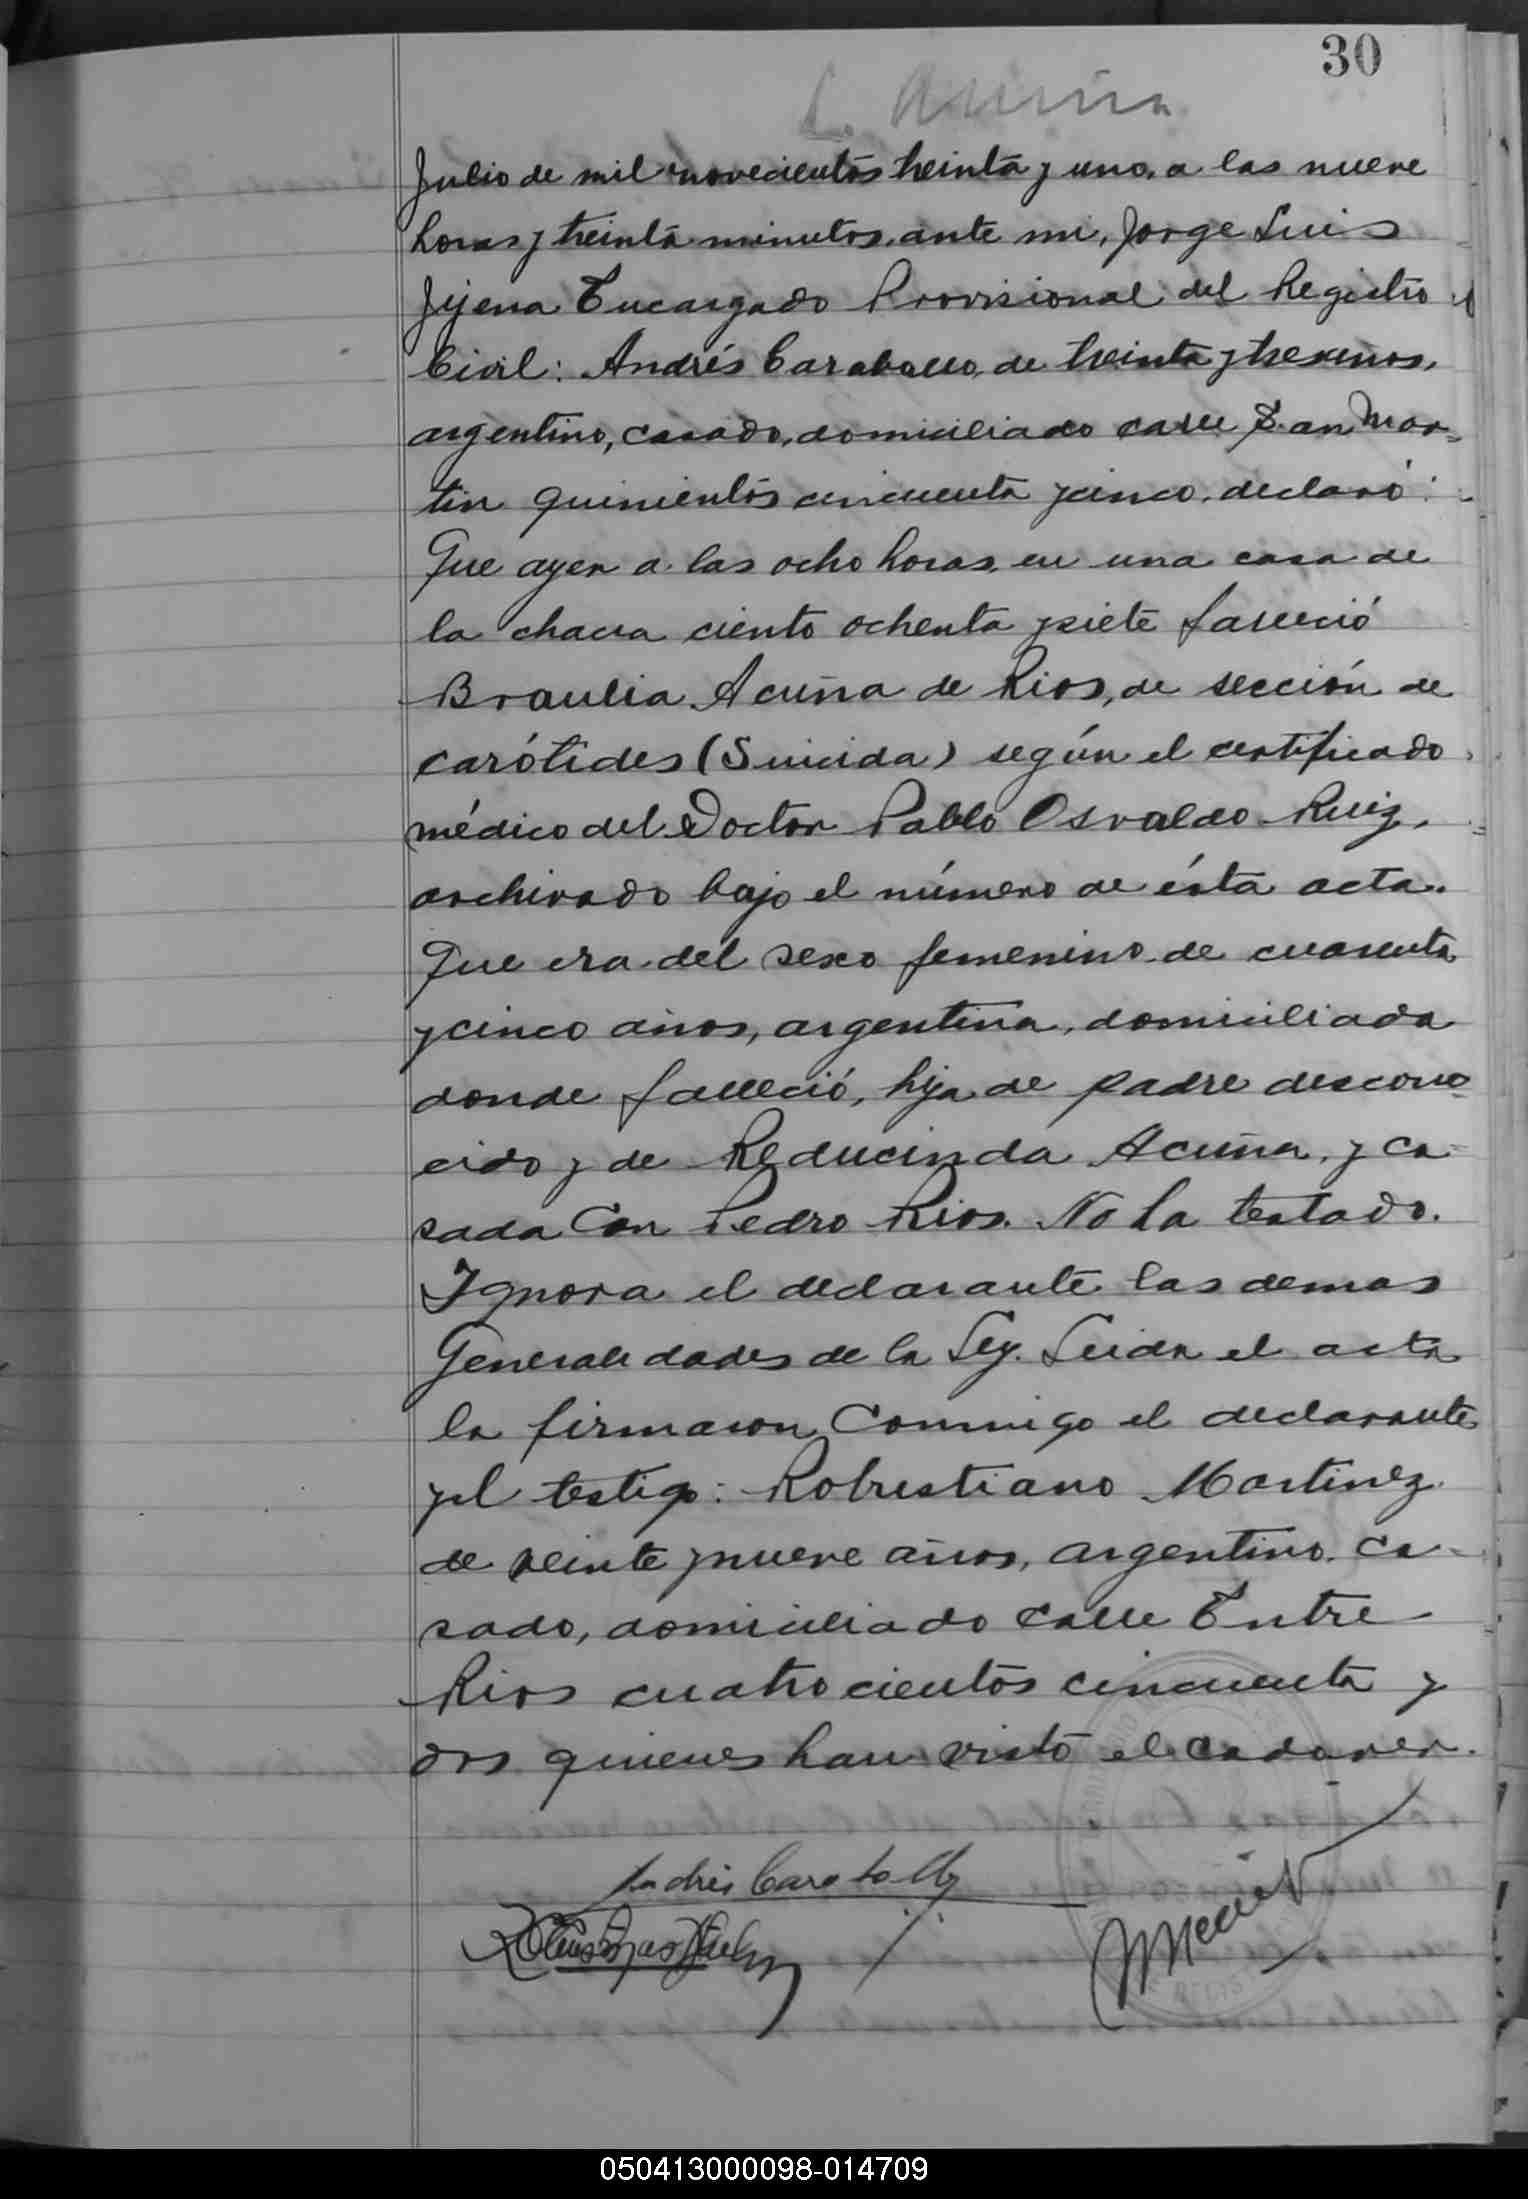 30
Acuña
Julio de mil novecientos treinta y uno, a las nueve
horas y treinta minutos, ante mi, Jorge Luis
Jijena Encargado Provisional del Registro
Civil: Andrés Caraballo, de treinta y tres años,
argentino, casado, domiciliado calle San Mar=
tin quinientos cincuenta y cinco, declaró:
Que ayer a las ocho horas, en una casa de
la chacra ciento ochenta y siete falleció
Braulia Acuña de Rios, de sección de
carótides (Suicida) según el certificado
médico del Doctor Pablo Osvaldo Ruiz,
archivado bajo el número de ésta acta.
Que era del sexo femenino de cuarenta
y cinco años, argentina, domiciliada
donde falleció, hija de padre descono=
cido y de Reducinda Acuña, y ca=
sada con Pedro Rios. No ha testado.
Ignora el declarante las demas
Generalidades de la Ley. Leida el acta
la firmaron conmigo el declarante
y el testigo: Robustiano Martinez
de veinte y nueve años, argentino, ca-
sado, domiciliado calle Entre
Rios cuatrocientos cincuenta y
dos quienes han visto el cadaver.
Andrés Caraballo
050413000098-014709